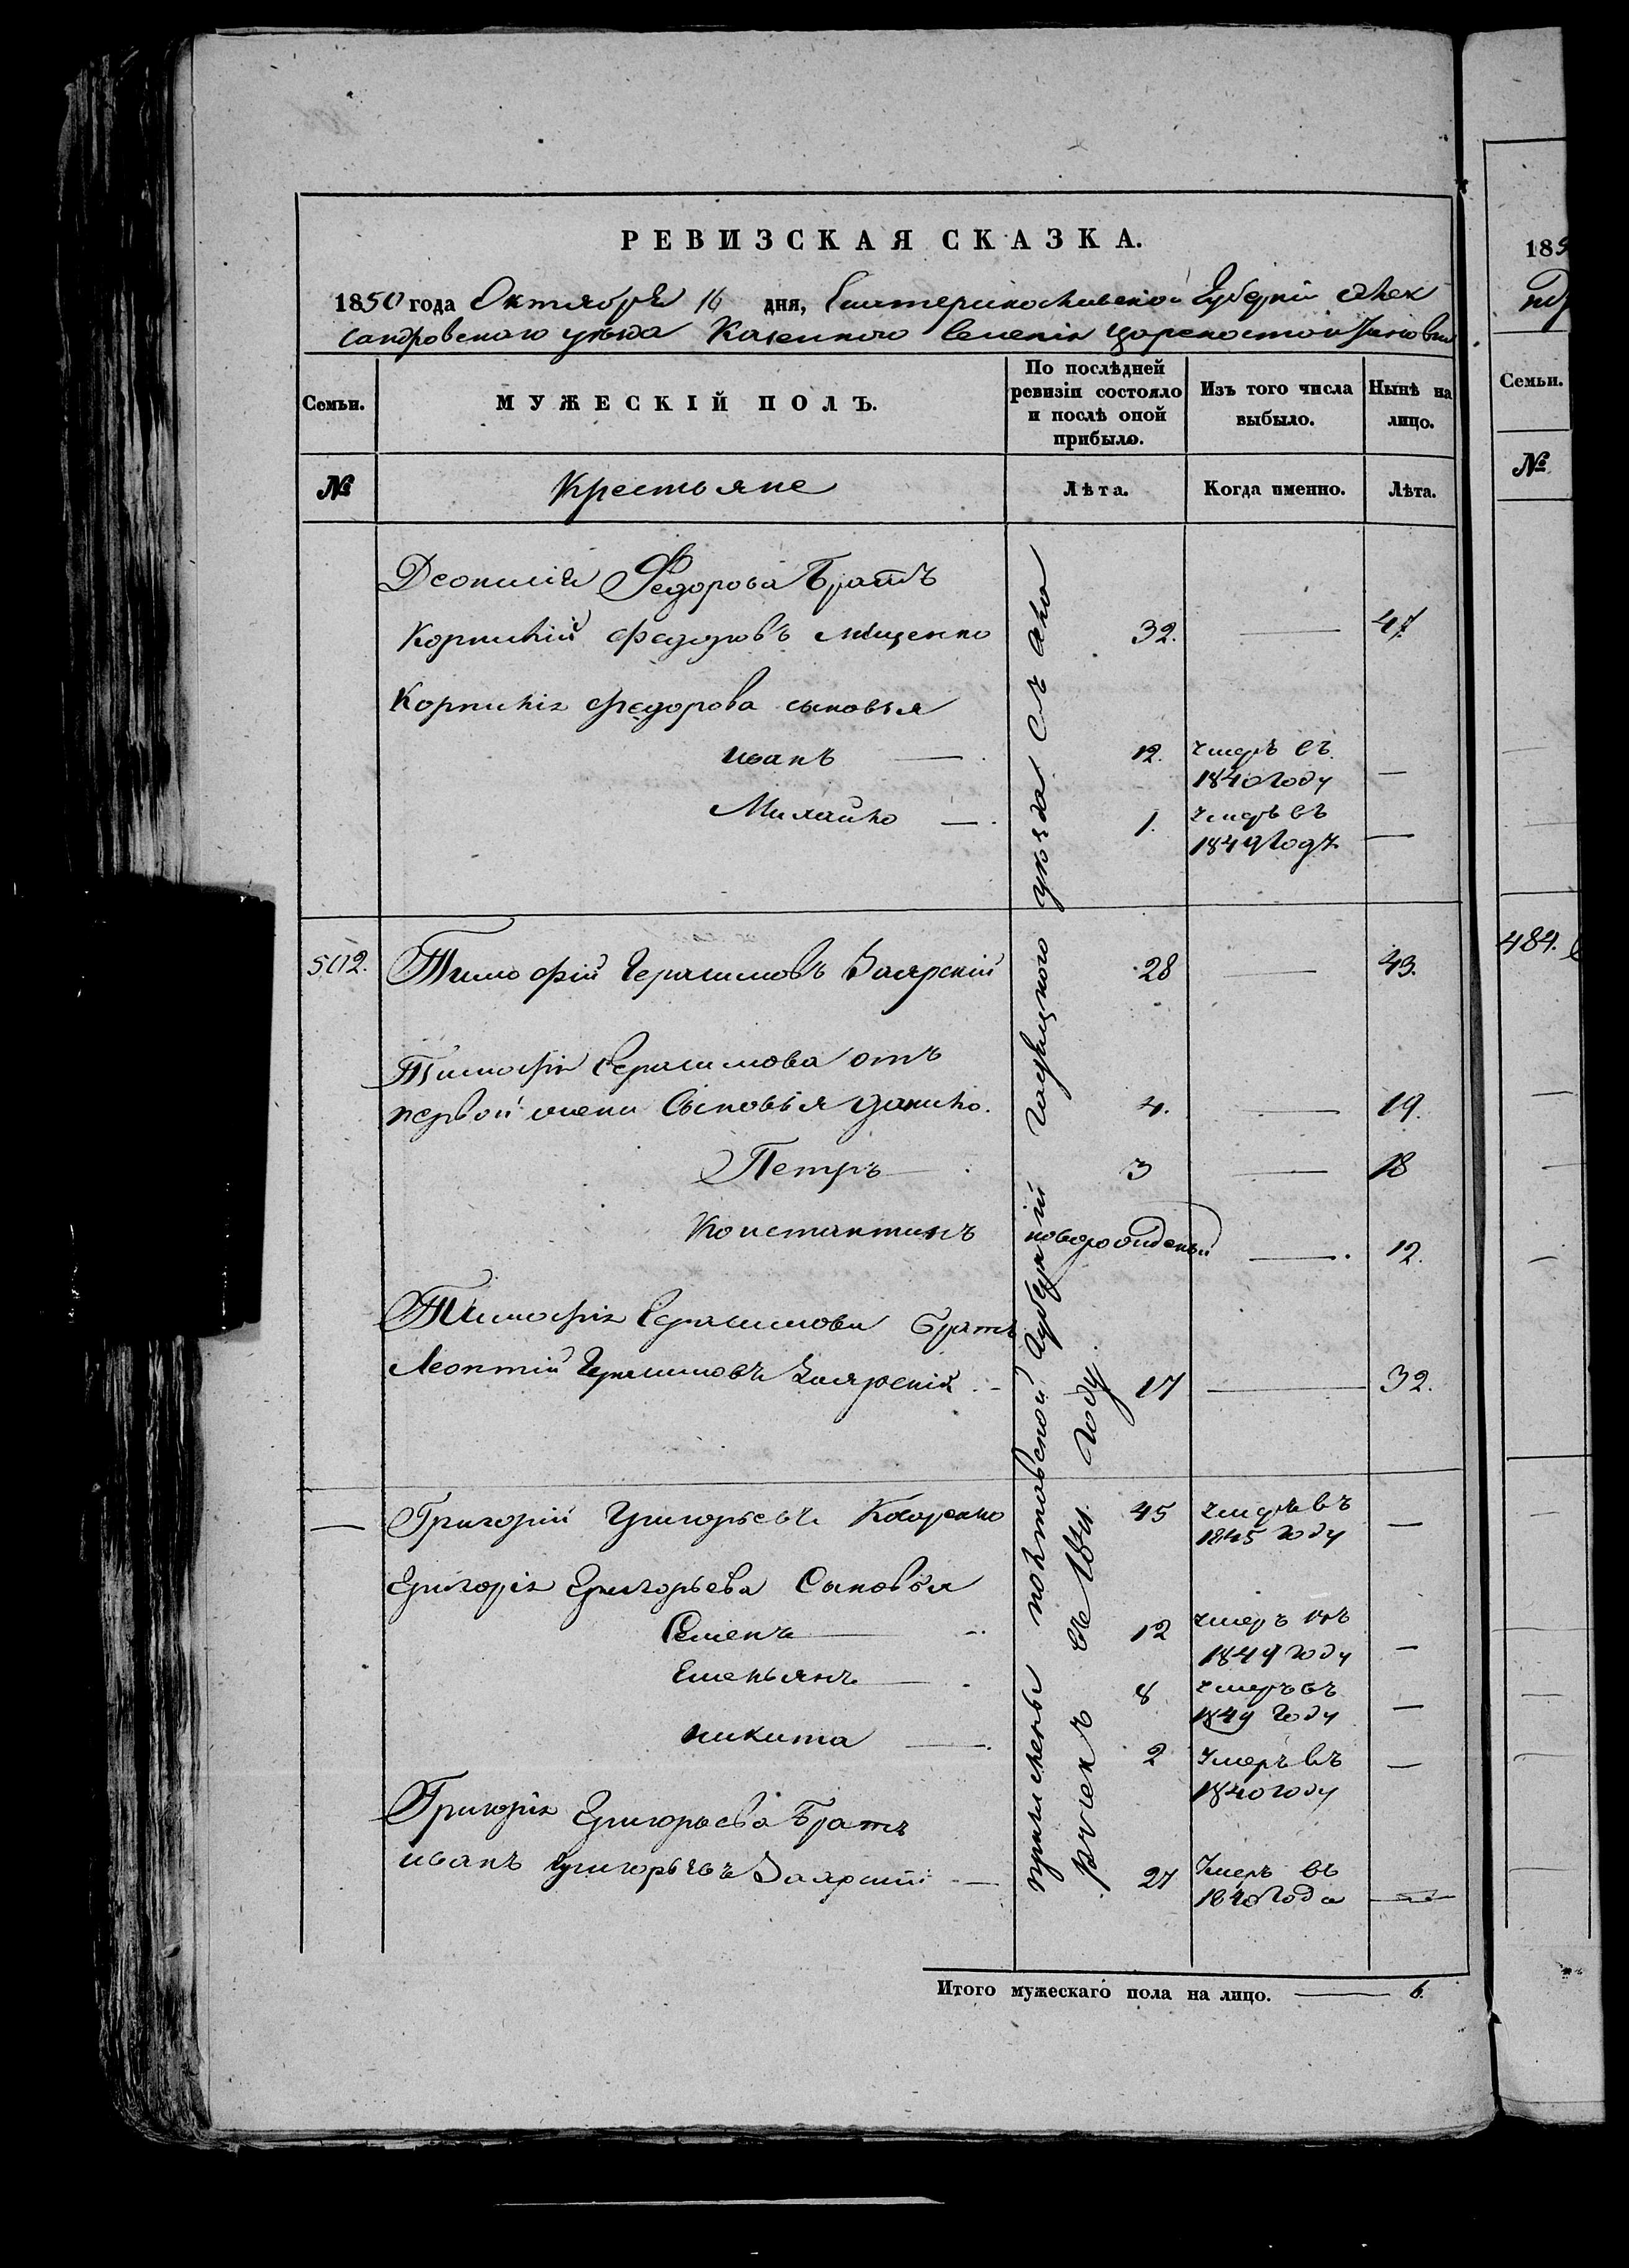 РЕВИЗСКАЯ СКАЗКА.
1850 года Октября 16 дня, Екатеринославской Губерніи Алек
сандровскаго уѣзда Казеннаго Селенія
Семьи.
МУЖЕСКІЙ ПОЛЪ.
По послѣдней ревизіи состояло и послѣ оной прибыло.
Изъ того числа выбыло.
Нынѣ на лицо.
№
Крестьяне
Лѣта.
Когда именно.
Лѣта.
Федорова Братъ
Корнилій Федоровъ Мищенко 32. — 47
Корнилія Федорова сыновья
Иванъ — 12. умеръ въ 1840 году —
Михайло — 1. умеръ въ 1849 годѣ —
502. Тимофій Герасимовъ Заярскій 28 — 43.
Тимофія Герасимова отъ
первой жены Сыновья Данило. 4. — 19.
Петръ — 3 — 18
Константинъ новорожденый — 12.
Тимофія Герасимова братъ
Леонтій Герасимовъ Заярскій — 17 — 32.
— Григорій Григорьевъ 45 умеръ въ 1845 году —
Григорія Григорьева Сыновья
Семенъ — 12 умеръ въ 1849 году —
Емельянъ — 8 умеръ въ 1849 году —
Никита — 2 Умеръ въ 1840 году —
Григорія Григорьева Братъ
Иванъ Григорьевъ Заярскій — 27 Умеръ въ 1840 года —
причислены Полтавской Губерніи Гадяцкого уѣзда
въ 184 году.
Итого мужескаго пола на лицо. — 6.
185
Семьи.
№
484.